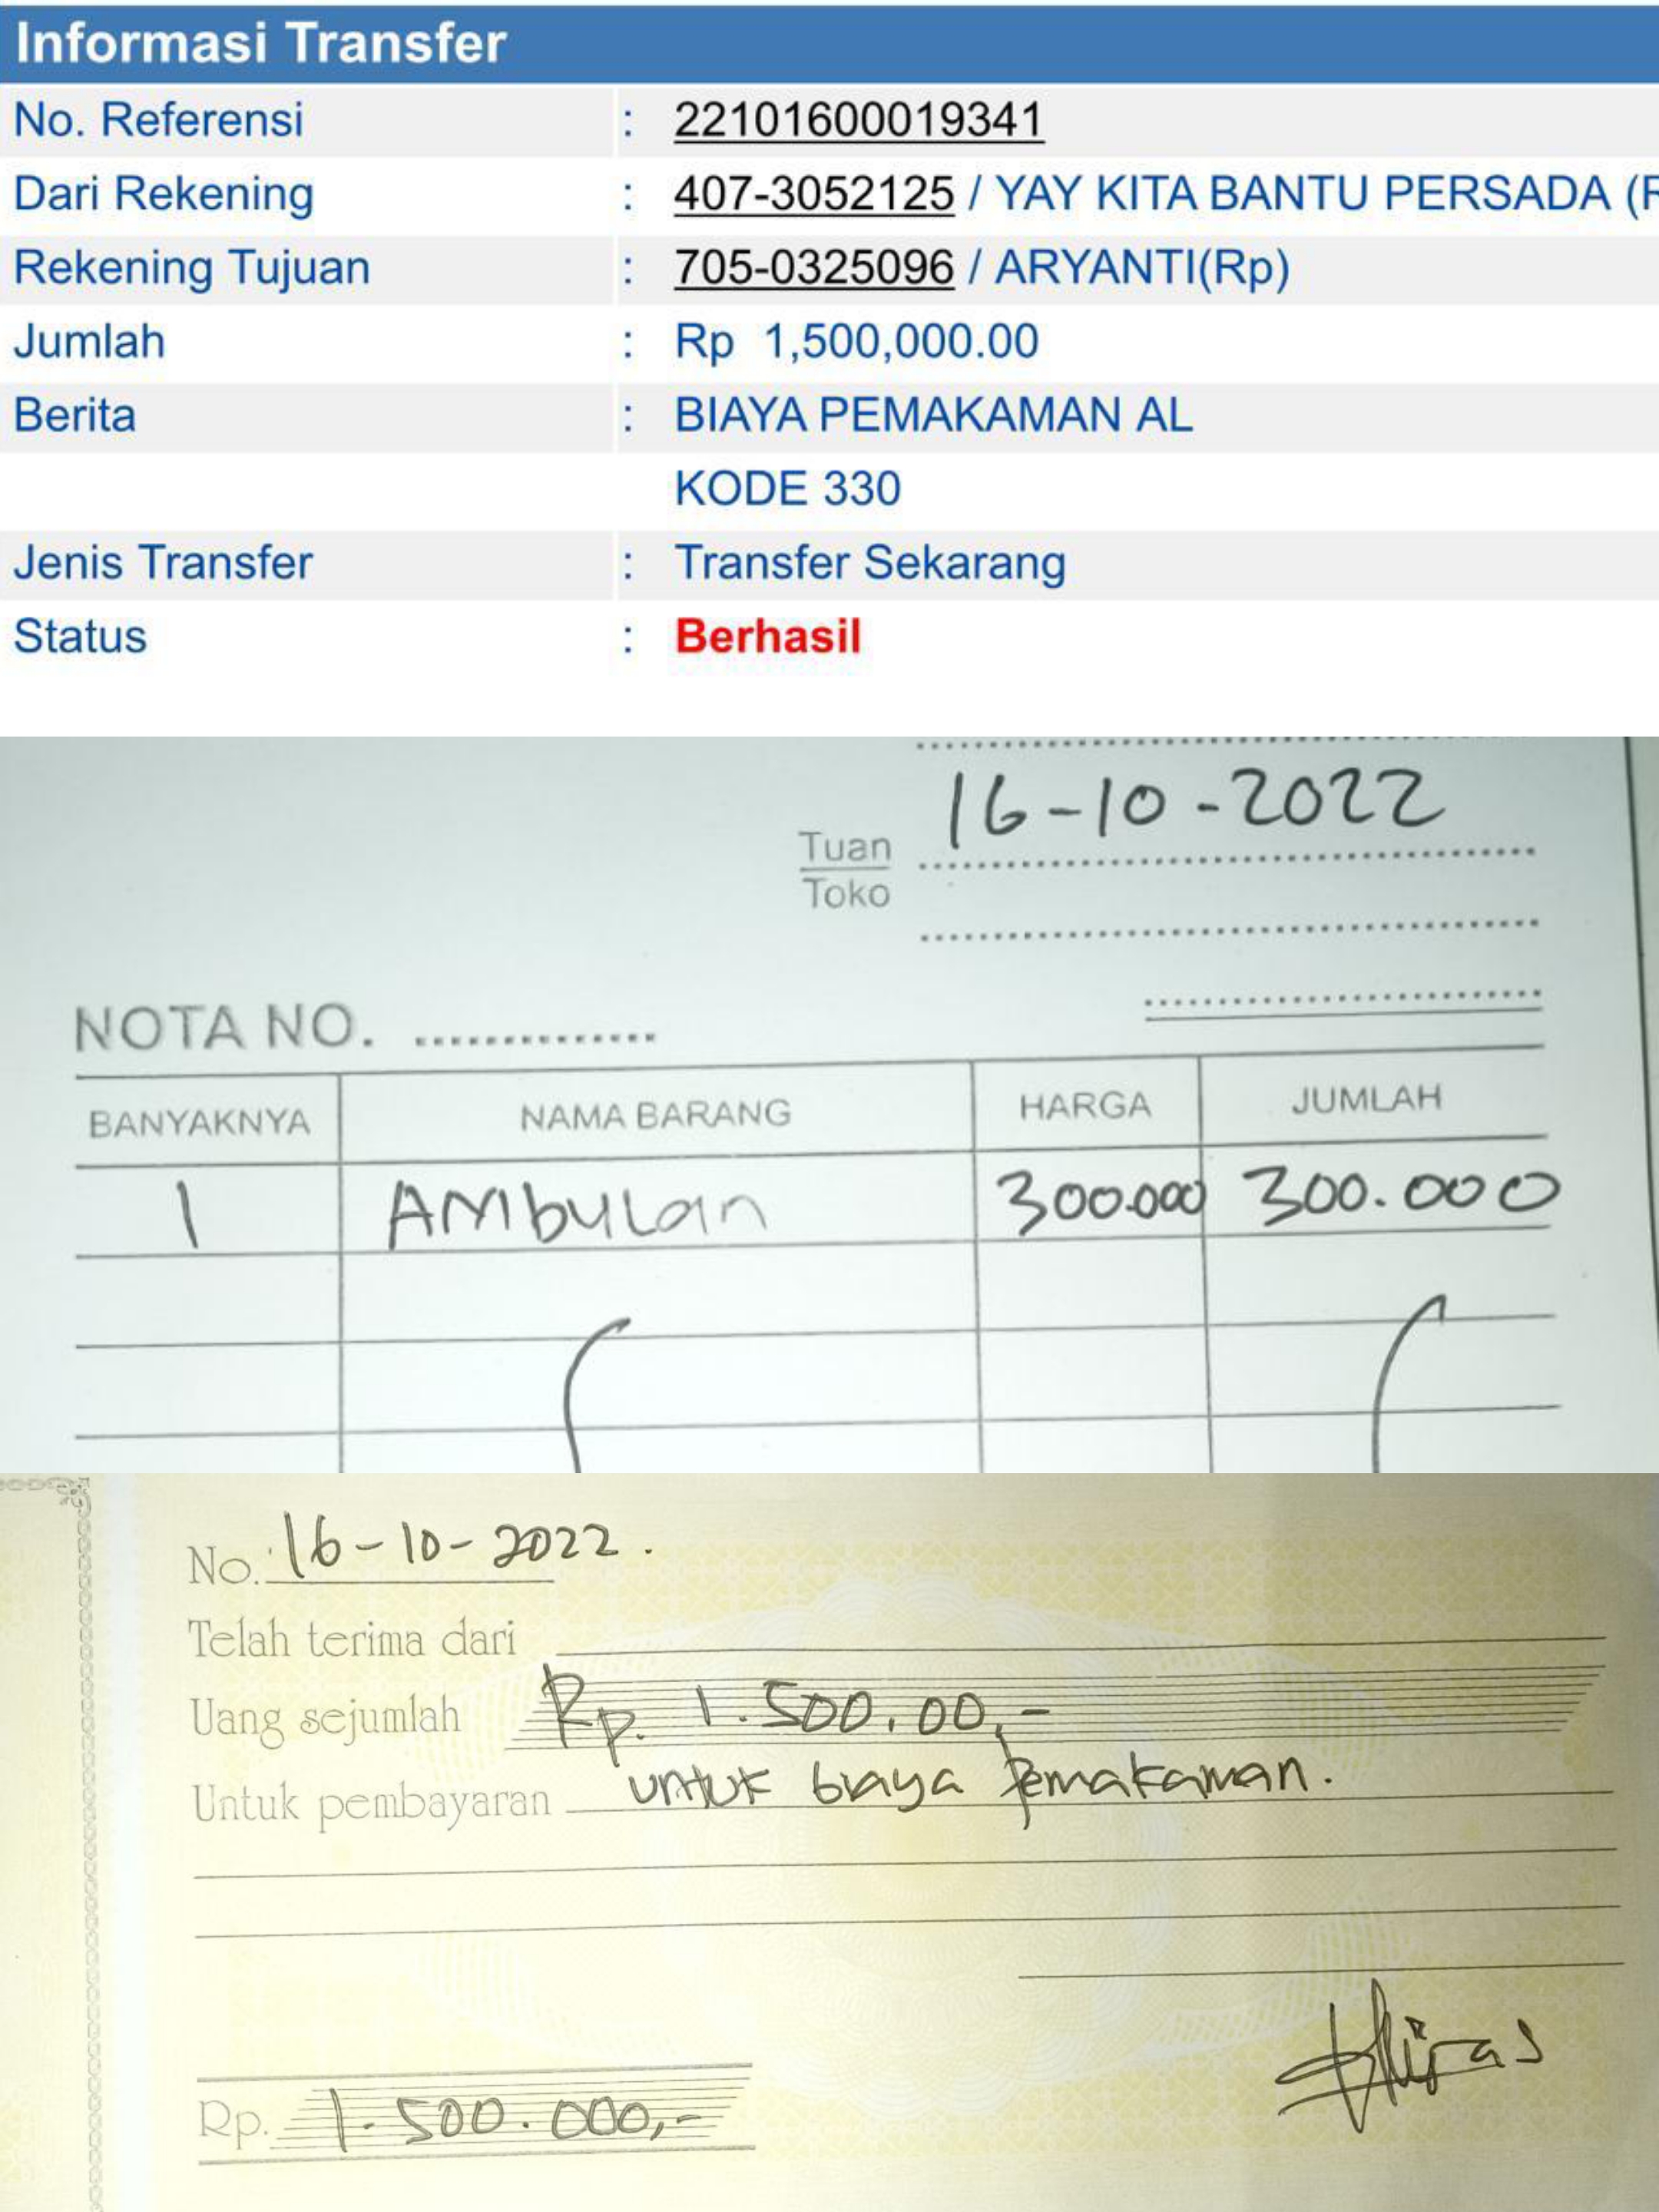 Informasi Transfer
No. Referensi : 22101600019341
Dari Rekening : 407-3052125 / YAY KITA BANTU PERSADA (R
Rekening Tujuan : 705-0325096 / ARYANTI(Rp)
Jumlah : Rp 1,500,000.00
Berita : BIAYA PEMAKAMAN AL
KODE 330
Jenis Transfer : Transfer Sekarang
Status : Berhasil
16-10-2022
Tuan
Toko
NOTA NO. ..............
BANYAKNYA NAMA BARANG HARGA JUMLAH
1 AMbuLan 300.000 300.000
No. 16-10-2022.
Telah terima dari
Uang sejumlah Rp. 1.500.00,-
Untuk pembayaran untuk biaya Pemakaman.
Rp. 1.500.000,-